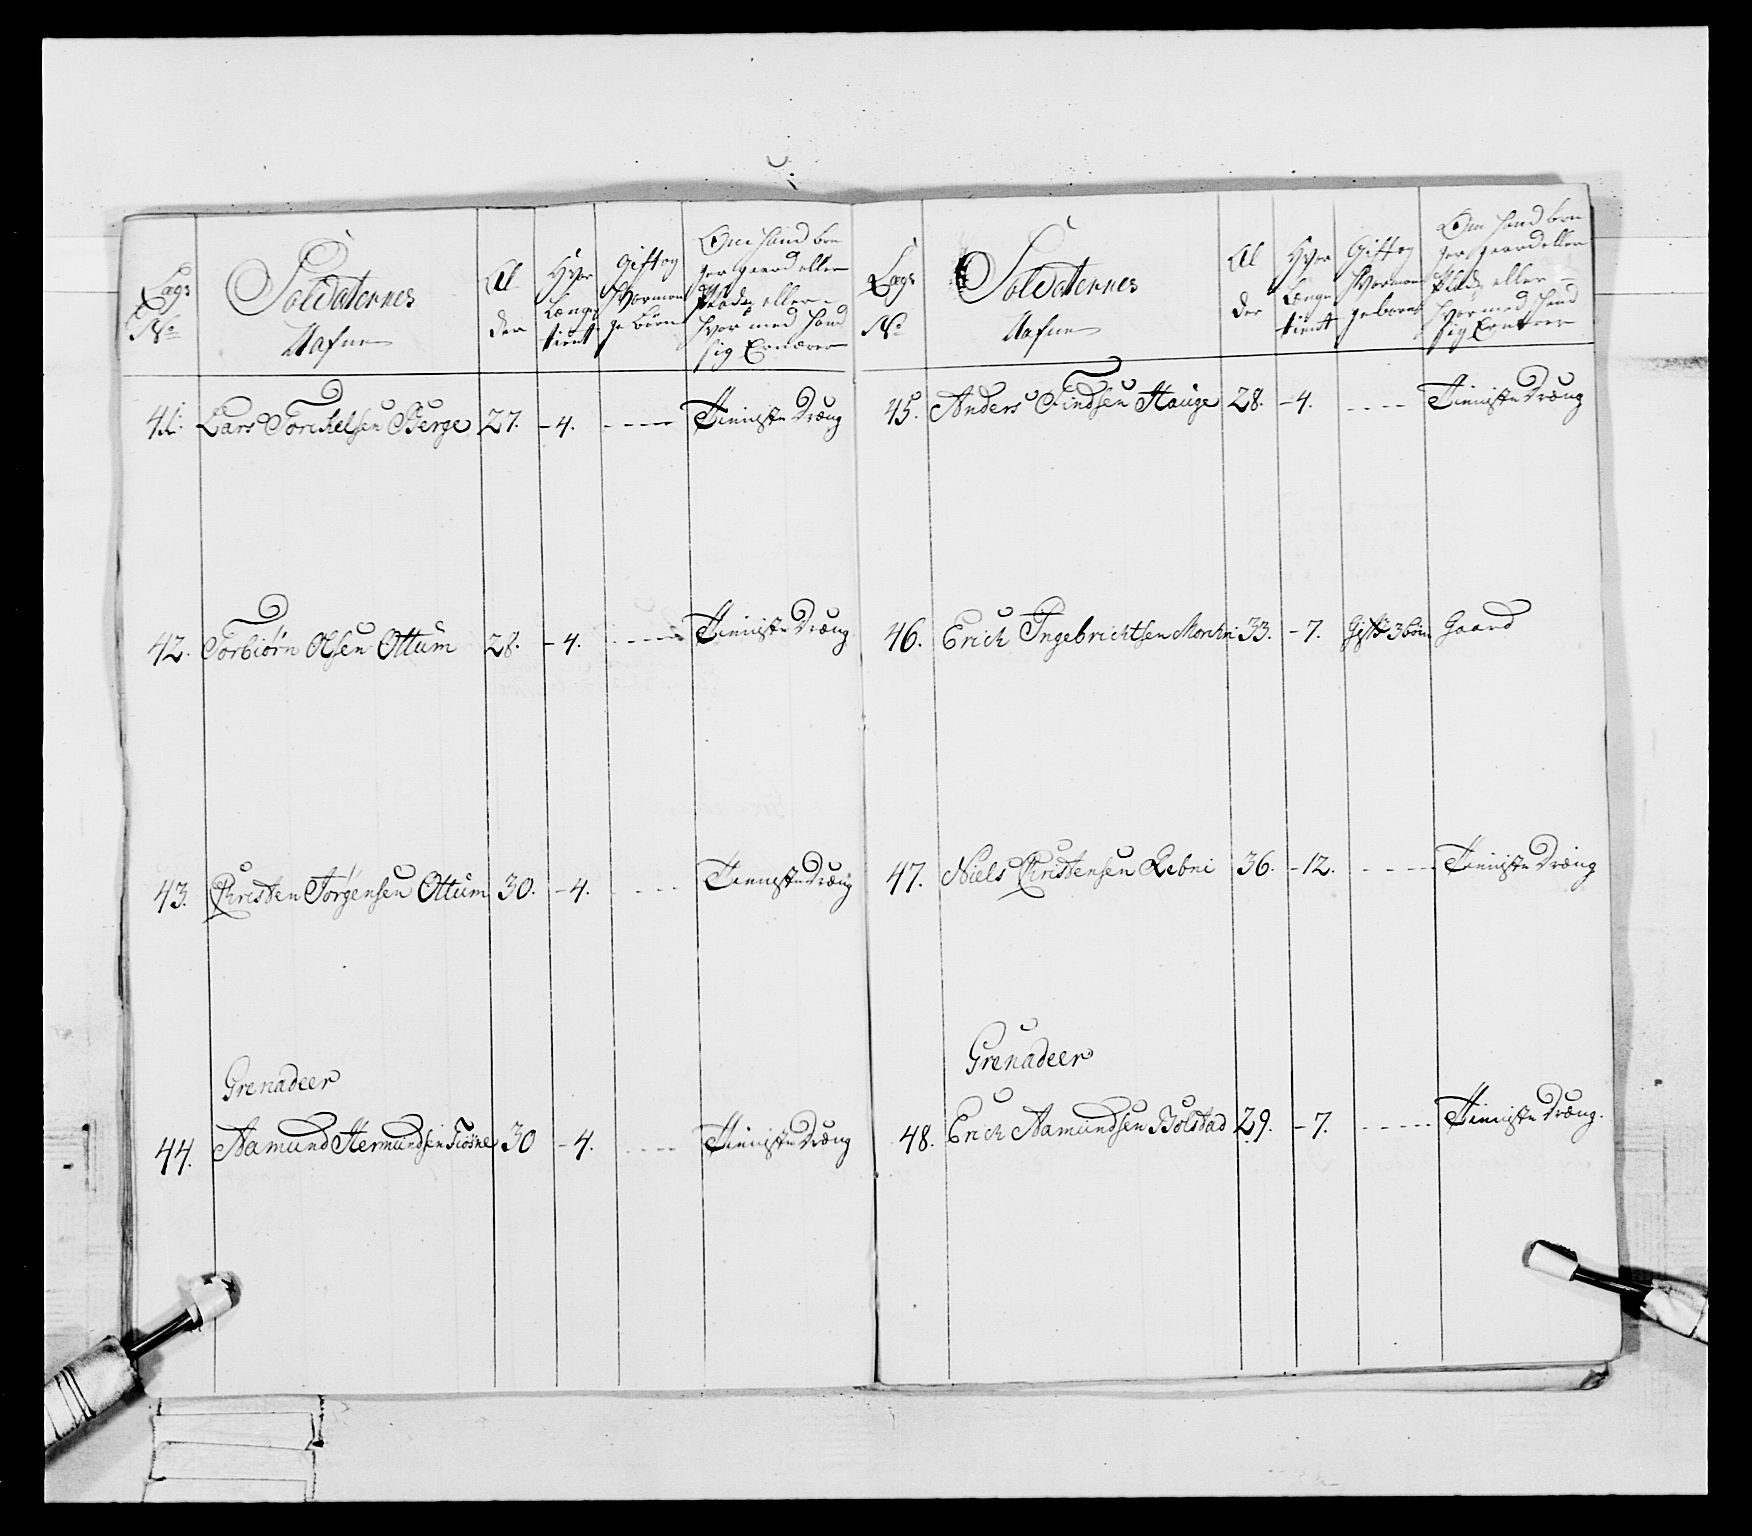 Lægs No
Soldaternes Nafne
Al der
Hvor Længe tient
Gift og Hvormange Børn
Om Hand bruger gaard eller Plads eller hvor med Hand sig Ernærer
41. Lars Torchelsen Berge 27. - 4. - - - - Tienniste Dræng
42. Torbiørn Olsen Ottum 28. - 4. - - - - Tienniste Dræng
43. Christen Jørgensen Ottum 30. - 4. - - - Tienniste Dræng
Grenadeer
44. Aamund Hermundsen Fiøsne 30 - 4. - - - - Tienniste Dræng
Lægs No
Soldaternes Nafne
Al der
Hvor Længe tient
Gift og Hvormange børn
Om Hand bruger gaard eller Plads eller hvor med Hand sig
45. Anders Findsen Hauge 28. - 4. - - - - Tienniste Dræng
46. Erich Ingebrichtsen 33. - 7. Gift 3 børn Gaard
47. Niels Christensen Rebni 36. - 12. - - - - Tienniste Dræng
Grenadeer
48. Erich Aamundsen Bolstad 29. - 7. - - - - - Tienniste Dræng.